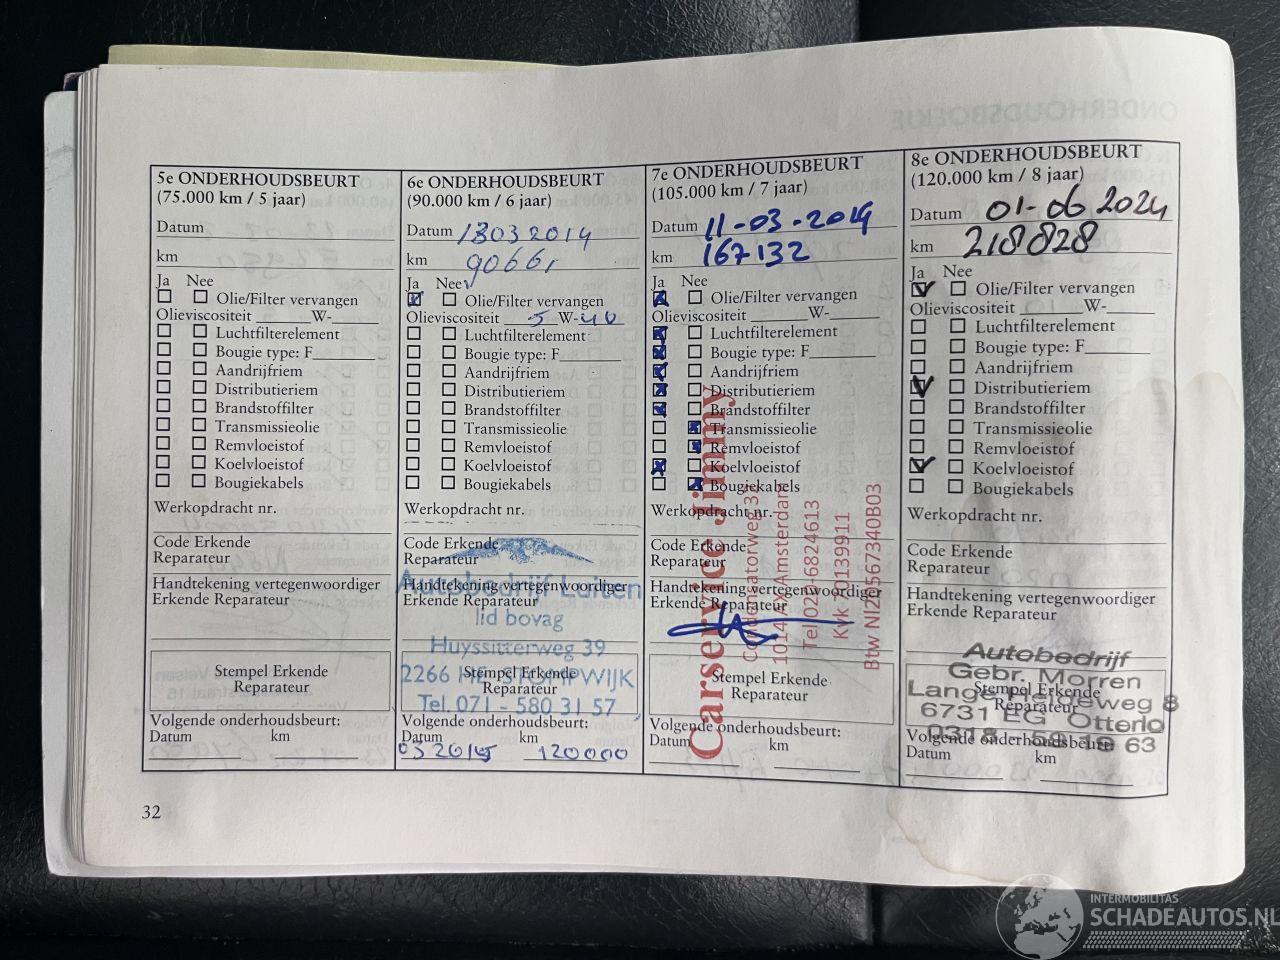 5e ONDERHOUDSBEURT
(75.000 km / 5 jaar)
Datum
km
Ja Nee
Olie/Filter vervangen
Olieviscositeit ______W-______
Luchtfilterelement
Bougie type: F________
Aandrijfriem
Distributieriem
Brandstoffilter
Transmissieolie
Remvloeistof
Koelvloeistof
Bougiekabels
Werkopdracht nr.
Code Erkende
Reparateur
Handtekening vertegenwoordiger
Erkende Reparateur
Stempel Erkende
Reparateur
Volgende onderhoudsbeurt:
Datum km
6e ONDERHOUDSBEURT
(90.000 km / 6 jaar)
Datum 13 03 2014
km 90661
Ja Nee
Olie/Filter vervangen
Olieviscositeit 5 W-40
Luchtfilterelement
Bougie type: F________
Aandrijfriem
Distributieriem
Brandstoffilter
Transmissieolie
Remvloeistof
Koelvloeistof
Bougiekabels
Werkopdracht nr.
Code Erkende
Reparateur
Handtekening vertegenwoordiger
Erkende Reparateur
Autobedrijf Luiten
lid bovag
Huyssitterweg 39
2266 HE STOMPWIJK
Tel. 071 - 580 31 57
Stempel Erkende
Reparateur
Volgende onderhoudsbeurt:
Datum km
03 2015 120000
7e ONDERHOUDSBEURT
(105.000 km / 7 jaar)
Datum 11-03-2019
km 167132
Ja Nee
Olie/Filter vervangen
Olieviscositeit ______W-______
Luchtfilterelement
Bougie type: F________
Aandrijfriem
Distributieriem
Brandstoffilter
Transmissieolie
Remvloeistof
Koelvloeistof
Bougiekabels
Werkopdracht nr.
Code Erkende
Reparateur
Handtekening vertegenwoordiger
Erkende Reparateur
Stempel Erkende
Reparateur
Volgende onderhoudsbeurt:
Datum km
Carservice Jimmy
1014 AX Amsterdam
Tel 020-6824613
Kvk 70139911
8e ONDERHOUDSBEURT
(120.000 km / 8 jaar)
Datum 01-06 2024
km 218828
Ja Nee
Olie/Filter vervangen
Olieviscositeit ______W-______
Luchtfilterelement
Bougie type: F________
Aandrijfriem
Distributieriem
Brandstoffilter
Transmissieolie
Remvloeistof
Koelvloeistof
Bougiekabels
Werkopdracht nr.
Code Erkende
Reparateur
Handtekening vertegenwoordiger
Erkende Reparateur
Autobedrijf
Gebr. Morren
Lange Heideweg 8
6731 EG Otterlo
Stempel Erkende
Reparateur
Volgende onderhoudsbeurt:
Datum km
32
INTERMOBILITAS
SCHADEAUTOS.NL